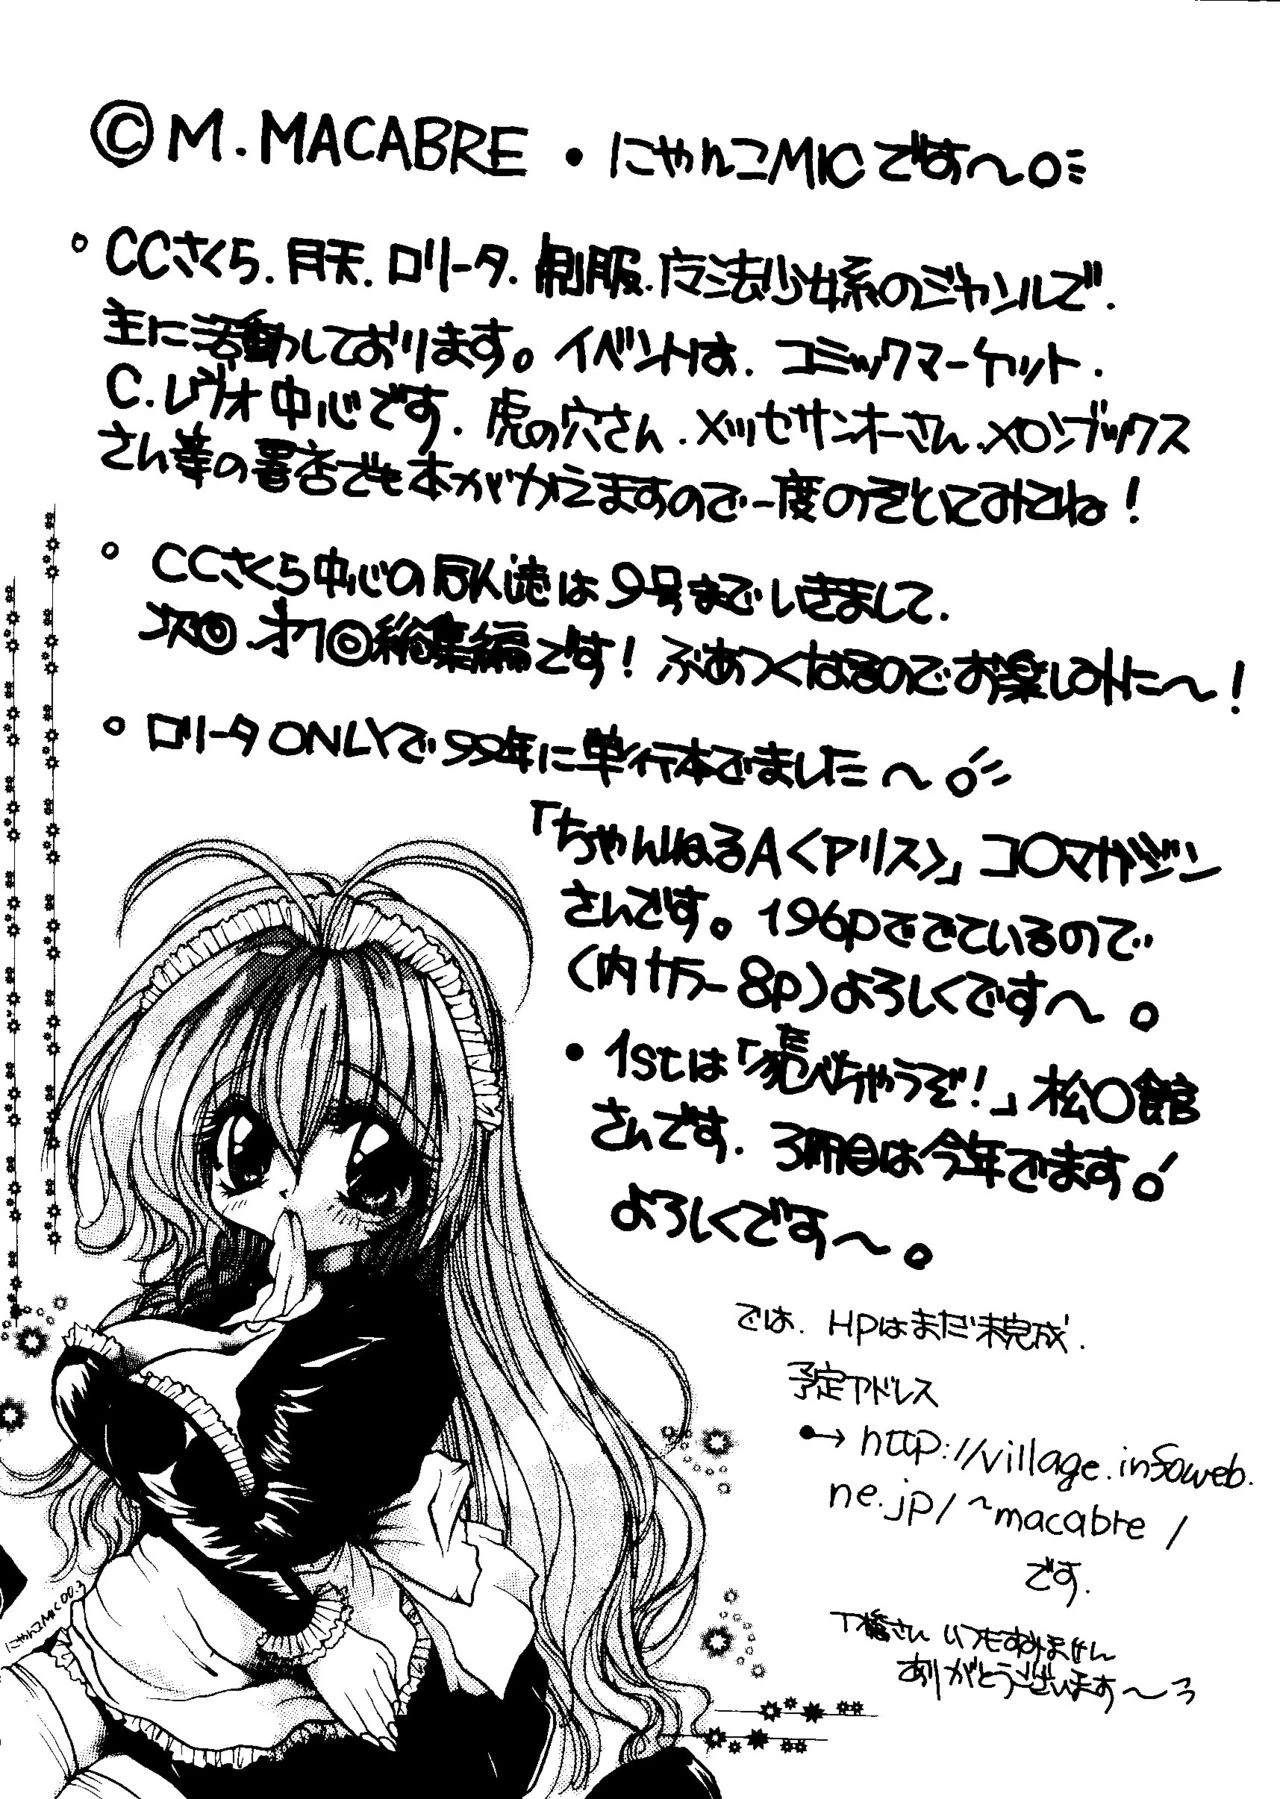 © M. MACABRE・にゃんこMICです〜○
○ CCさくら.月天.ロリータ.制服.魔法少女系のジャンルで.
主に活動しております。イベントは.コミックマーケット.
C.レヴォ中心です.虎の穴さん.メッセサンオーさん.メロンブックス
さん等の書店でも本がかえますので一度のぞいてみてね！
○ CCさくら中心の同人誌は9号までいきまして.
次◎.オ1◎総集編です！ぶあつくなるのでお楽しみに〜！
○ ロリータONLYで99年に単行本でました〜○
「ちゃんねるA<アリス>」コ○マガジン
さんです。196pででているので
(内カラー8p)よろしくです〜。
● 1stは「食べちゃうぞ！」松○館
さんです.3冊目は今年でます○
よろしくです〜。
では.HPはまだ未完成.
予定アドレス
●→ http://village.infoweb.
ne.jp/~macabre/
です.
T橋さん いつもすみません
ありがとうございます〜っ
にゃんこMIC 00.3